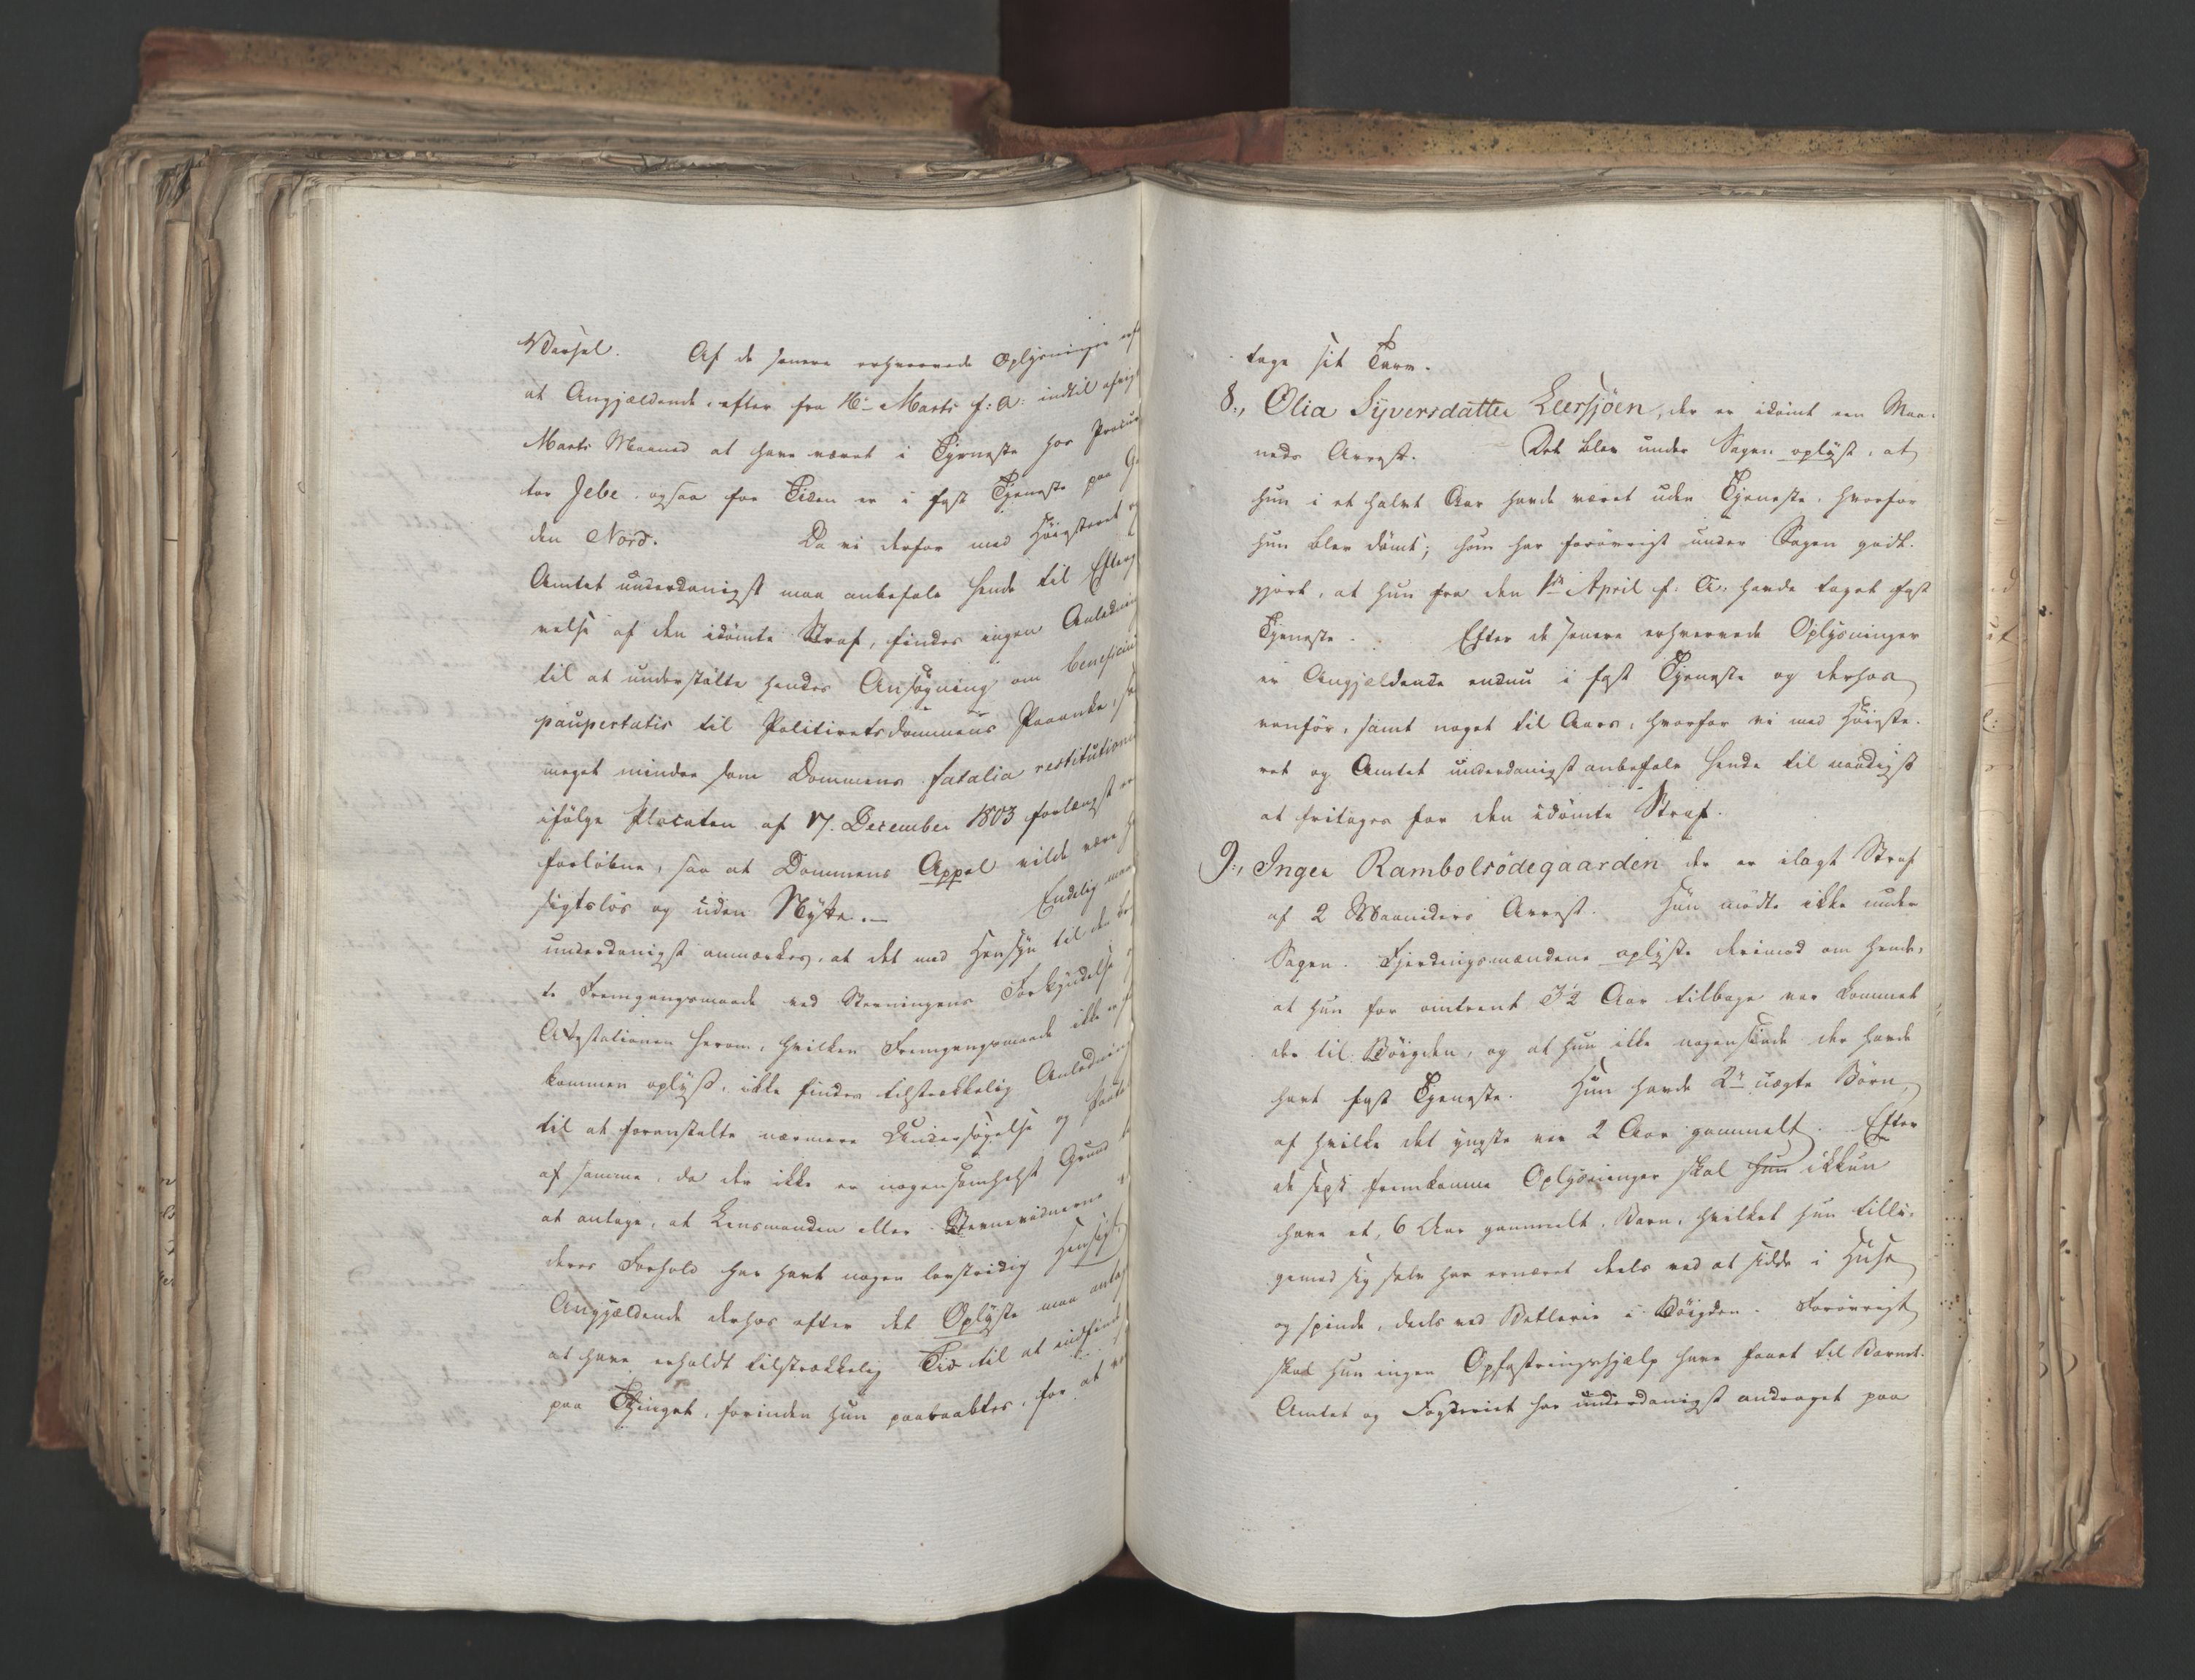 Varsel. Af de senere erhvervede Oplysninger erf
at Angjældende, efter fra 16de Marts f: A: indtil afvigt
Marts Maaned at have været i Tjeneste hos Procur
tor Jebe, ogsaa for Tiden er i fast Tjeneste paa G
den Nord. Da vi derfor med Høiesteret og
Amtet underdanigst maa anbefale hende til Efterg
velse af den idømte Straf, findes ingen Anledning
til at understøtte hendes Ansøgning om beneficium
paupertatis til Politiretsdommens Paaanke, saa
meget mindre som Dommens fatalia restitutionis
ifølge Placaten af 17. December 1803 forlængst er
forløbne, saa at Dommens Appel vilde være h
sigtsløs og uden Nytte.— Endelig maa
underdanigst anmærkes, at det med Hensyn til den br
te Fremgangsmaade ved Stevningens Forkyndelse og
Attestationen herom, hvilken Fremgangsmaade ikke er f
kommen oplyst, ikke findes tilstrækkelig Anledning
til at foranstalte nærmere Undersøgelse og Paatal
af samme, da der ikke er nogensomhelst Grund t
at antage, at Lensmanden eller Stevnevidnerne v
deres Forhold har havt nogen lovstridig Hensigt,
Angjældende derhos efter det Oplyste maa antag
at have erholdt tilstrækkelig Tid til at indfinde
paa Thinget, forinden hun paaraabtes, for at va
tage sit Tarv.
8., Olia Syversdatter Leersjøen, der er idømt een Maa-
neds Arrest. Det blev under Sagen oplyst, at
hun i et halvt Aar havde været uden Tjeneste, hvorfor
hun blev dømt; hun har forøvrigt under Sagen godt-
gjort, at hun fra den 1ste April f: A: havde taget fast
Tjeneste. Efter de senere erhvervede Oplysninger
er Angjældende endnu i fast Tjeneste og derhos
vanfør, samt noget til Aars, hvorfor vi med Høieste-
ret og Amtet underdanigst anbefale hende til naadigst
at fritages for den idømte Straf.
9., Inger Rambolsødegaarden der er ilagt Straf
af 2 Maaneders Arrest. Hun mødte ikke under
Sagen. Fjerdingsmændene oplyste derimod om hende,
at hun for omtrent 3½ Aar tilbage var kommet
der til Bøigden, og at hun ikke nogensinde der havde
havt fast Tjeneste. Hun havde 2de uægte Børn,
af hvilke det yngste var 2 Aar gammelt. Efter
de sidst fremkomne Oplysninger skal hun ikkun
have et, 6 Aar gammelt, Barn, hvilket hun tilli-
gemed sig selv har ernæret deels ved at sidde i Huse
og spinde, deels ved Betlerie i Bøigden. Forøvrigt
skal hun ingen Opfostringshjælp have faaet til Barnet.
Amtet og Fogderiet har underdanigst andraget paa